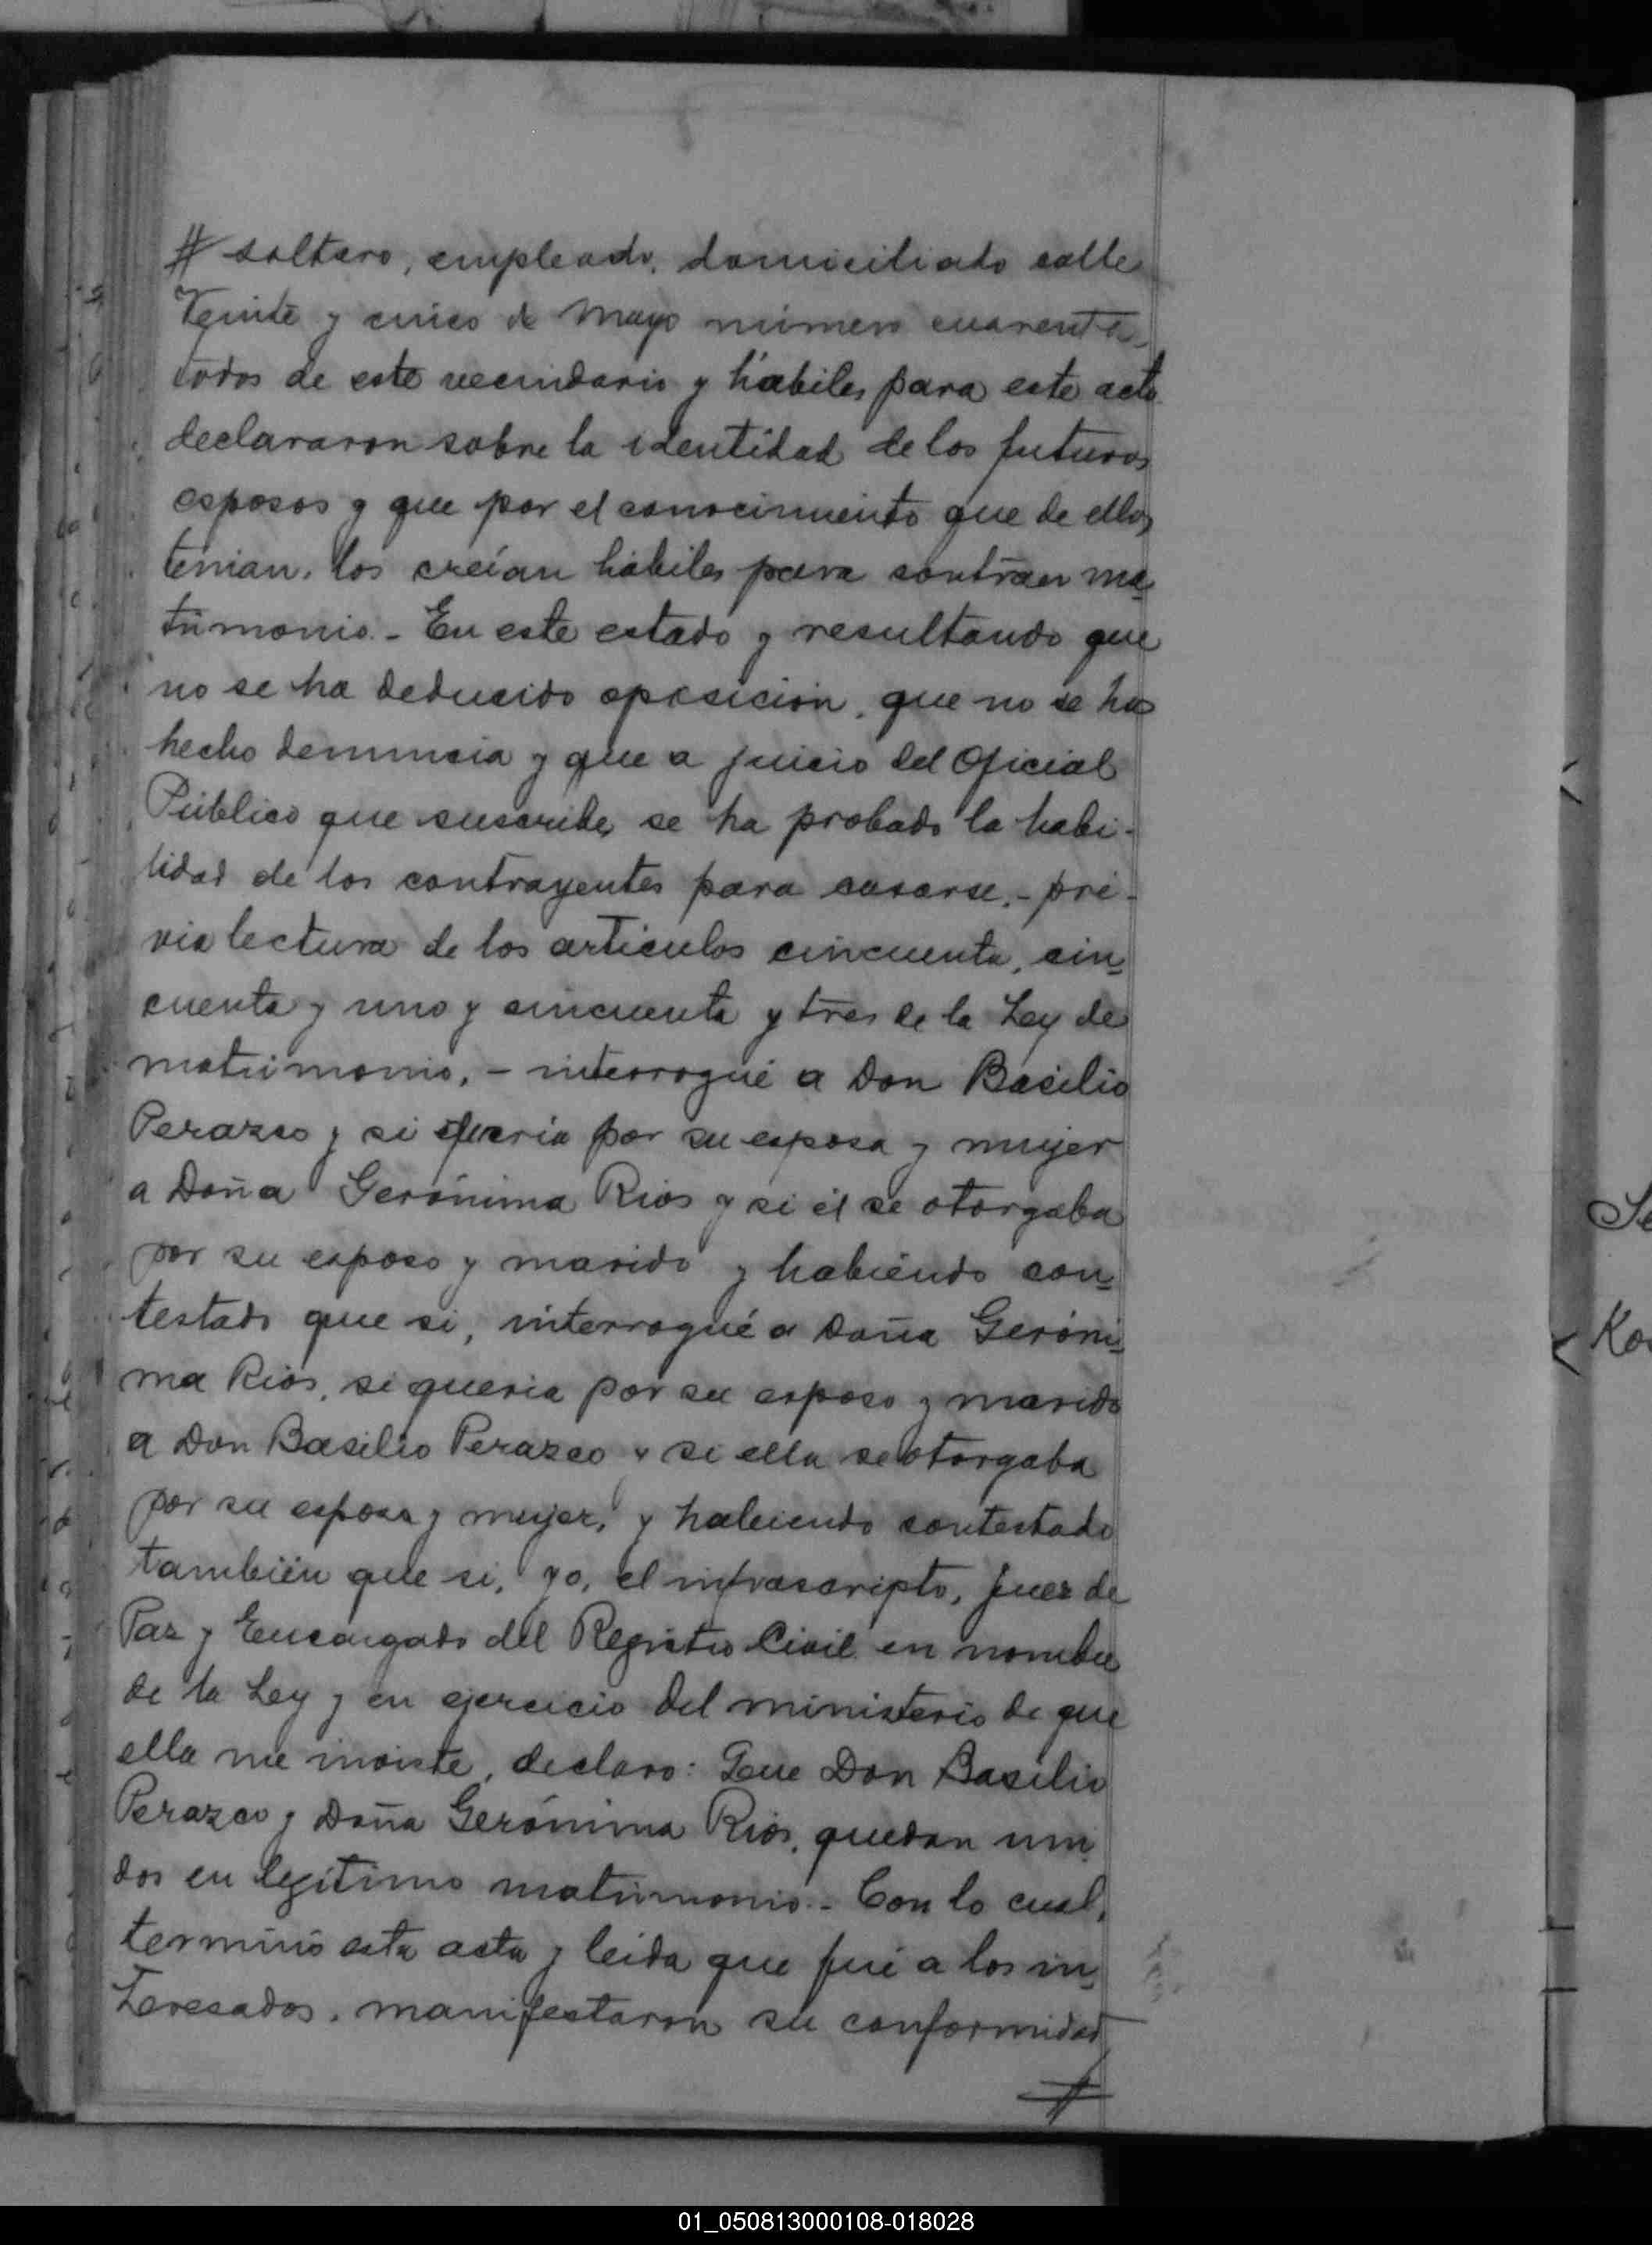 # soltero, empleado, domiciliado calle
Veinte y cinco de Mayo número cuarenta,
todos de este vecindario y hábiles para este acto
declararon sobre la identidad de los futuros
esposos y que por el conocimiento que de ellos
tenian, los creían hábiles para contraer ma-
trimonio.- En este estado y resultando que
no se ha deducido oposición, que no se ha
hecho denuncia y que a juicio del Oficial
Público que suscribe, se ha probado la habi-
lidad de los contrayentes para casarse.- pré-
via lectura de los artículos cincuenta, cin-
cuenta y uno y cincuenta y tres de la Ley de
matrimonio, - interrogué a Don Basilio
Perazzo y si quería por su esposa y mujer
a Doña Gerónima Rios y si él se otorgaba
por su esposo y marido y habiendo con-
testado que si, interrogué a Doña Geróni-
ma Rios, si queria por su esposo y marido
a Don Basilio Perazzo y si ella se otorgaba
por su esposa y mujer, y habiendo contestado
también que si, yo, el infrascripto, Juez de
Paz y Encargado del Registro Civil en nombre
de la Ley y en ejercicio del ministerio de que
ella me inviste, declaro: Que Don Basilio
Perazzo y Doña Gerónima Rios, quedan uni-
dos en legítimo matrimonio.- Con lo cual,
terminó esta acta y leida que fué a los in-
teresados, manifestaron su conformidad
#
Se
Ko
01_050813000108-018028